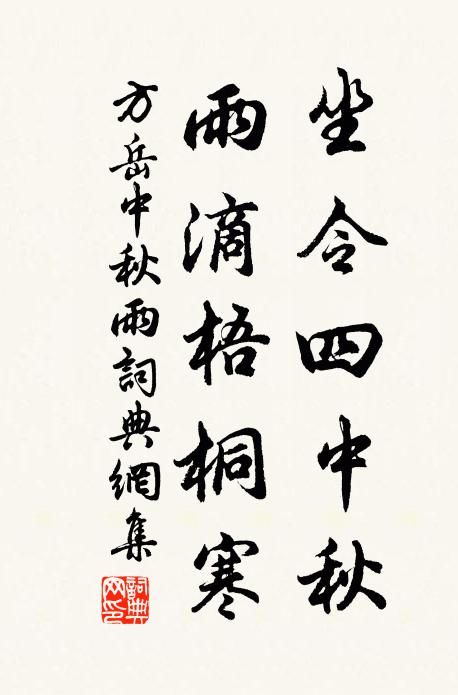 坐令四中秋
雨滴梧桐寒
方岳中秋雨詞典網集
詞典网印